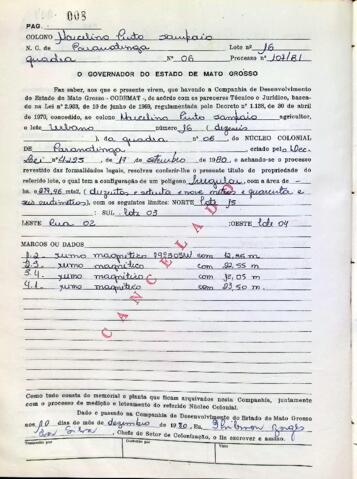 PAG. 003
COLONO Marcelino Pinto Sampaio
N. C. de Paranatinga Lote nº 16
quadra Nº 06 Processo nº 107/81
O GOVERNADOR DO ESTADO DE MATO GROSSO
Faz saber, aos que o presente virem, que havendo a Companhia de Desenvolvimento
do Estado de Mato Grosso - CODEMAT -, de acôrdo com os pareceres Técnico e Jurídico, basea-
do na Lei nº 2.903, de 19 de junho de 1969, regulamentada pelo Decreto Nº 1.138, de 30 de abril
de 1970, concedido, ao colono Marcelino Pinto Sampaio agricultor,
o lote urbano número 16 (dezeseis
) da quadra nº 06 do NÚCLEO COLONIAL
DE Paranatinga, criado pelo Dec.
Lei nº 4.295, de 17 de setembro de 1980, e achando-se o processo
revestido das formalidades legais, resolveu conferir-lhe o presente título de propriedade do
referido lote, o qual tem a configuração de um polígono irregular, com a área de
ha. e 279,46 mts2, (duzentos e setenta e nove metros e quarenta e
seis centímetros), com os seguintes limites: NORTE lote 15
: SUL: lote 03
LESTE Rua 02 :OESTE lote 04
MARCOS OU DADOS
1.2. rumo magnético com 12,56 m
2.3. rumo magnético com 22,55 m
3.4. rumo magnético com 12,05 m
4.1. rumo magnético com 23,50 m.
CANCELADO
Como tudo consta do memorial e planta que ficam arquivados nesta Companhia, juntamente
com o processo de medição e loteamento do referido Núcleo Colonial.
Dado e passado na Companhia de Desenvolvimento do Estado de Mato Grosso
aos 10 dias do mês de dezembro de 1980. Eu
da Silva, Chefe do Setor de Colonização, o fiz escrever e assino.